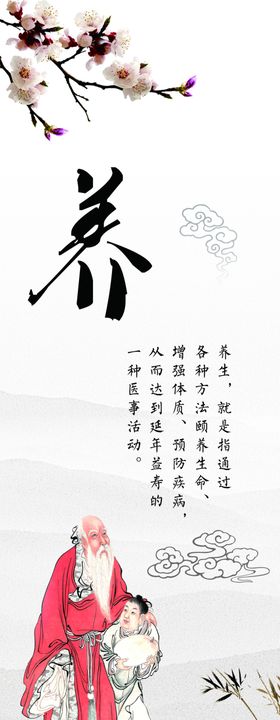 养
养生，就是指通过
各种方法颐养生命、
增强体质、预防疾病，
从而达到延年益寿的
一种医事活动。